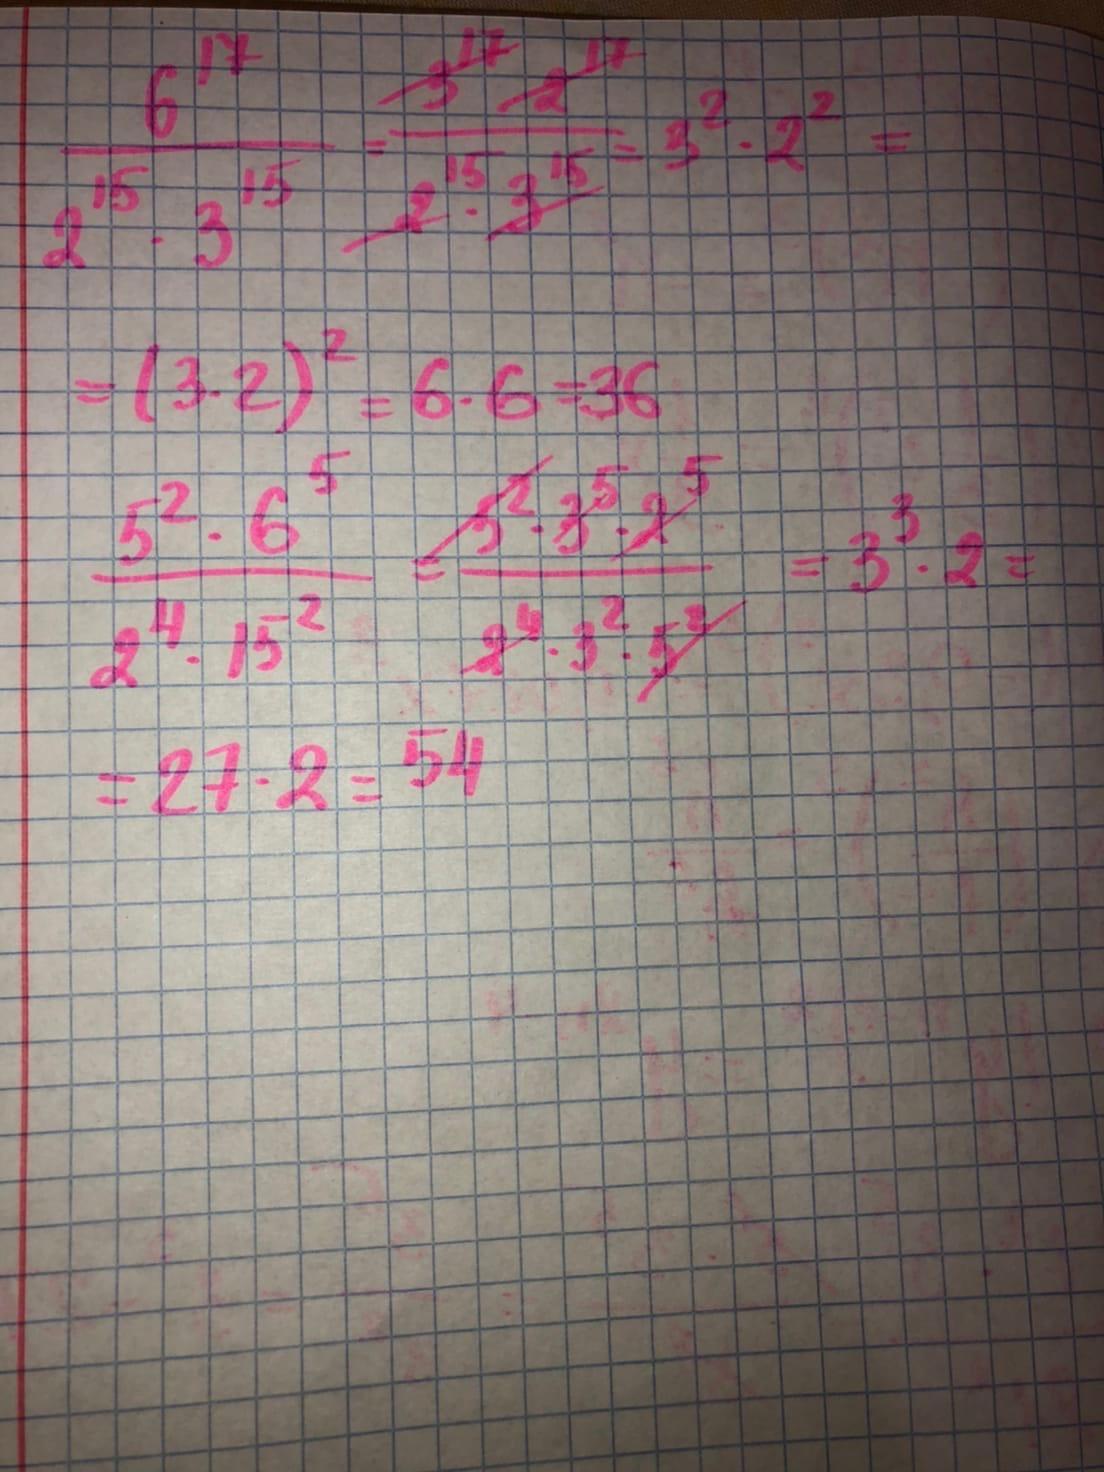 6^17 / (2^15 · 3^15) = (3^17 2^17) / (2^15 · 3^15) = 3^2 · 2^2 =
= (3·2)^2 = 6·6 =36
(5^2 · 6^5) / (2^4 · 15^2) = (5^2 · 3^5 · 2^5) / (2^4 · 3^2 · 5^2) = 3^3 · 2 =
= 27·2 = 54